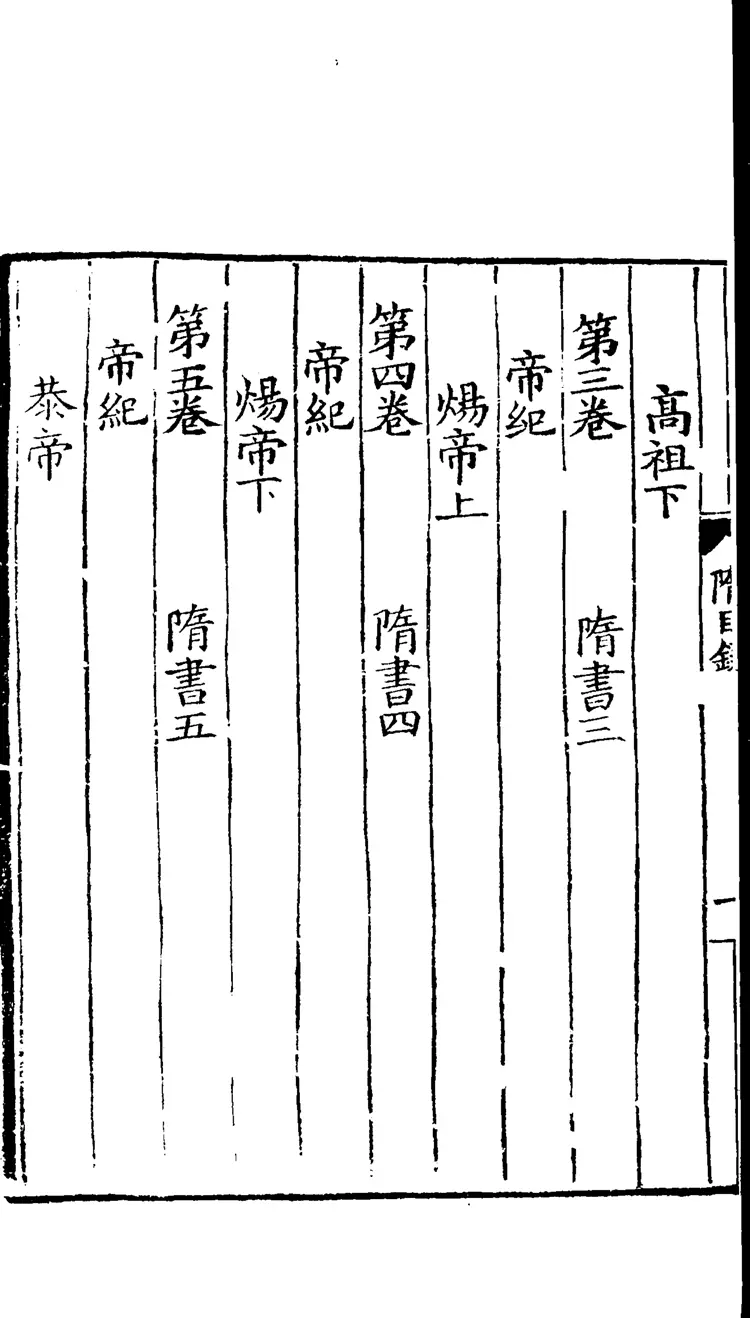 隋目錄
一
高祖下
第三卷 隋書三
帝紀
煬帝上
第四卷 隋書四
帝紀
煬帝下
第五卷 隋書五
帝紀
恭帝